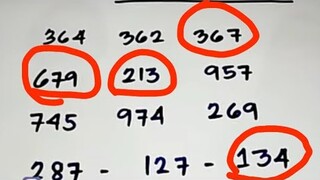 364 362 367
679 213 957
745 974 269
287 - 127 - 134